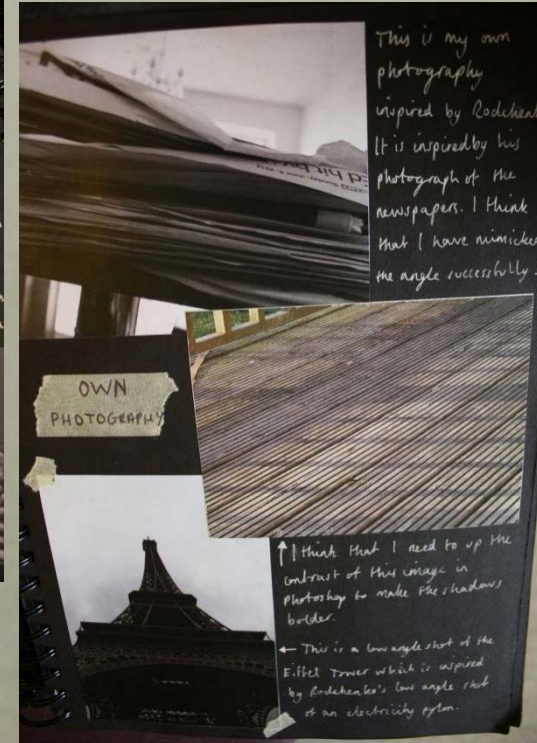 This is my own
photography
inspired by Rodchenk
It is inspired by his
photograph of the
newspapers. I think
that I have mimicked
the angle successfully.
OWN
PHOTOGRAPHY
↑ I think that I need to up the
contrast of this image in
Photoshop to make the shadows
bolder.
← This is a low angle shot of the
Eiffel Tower which is inspired
by Rodchenko's low angle shot
of an electricity pylon.